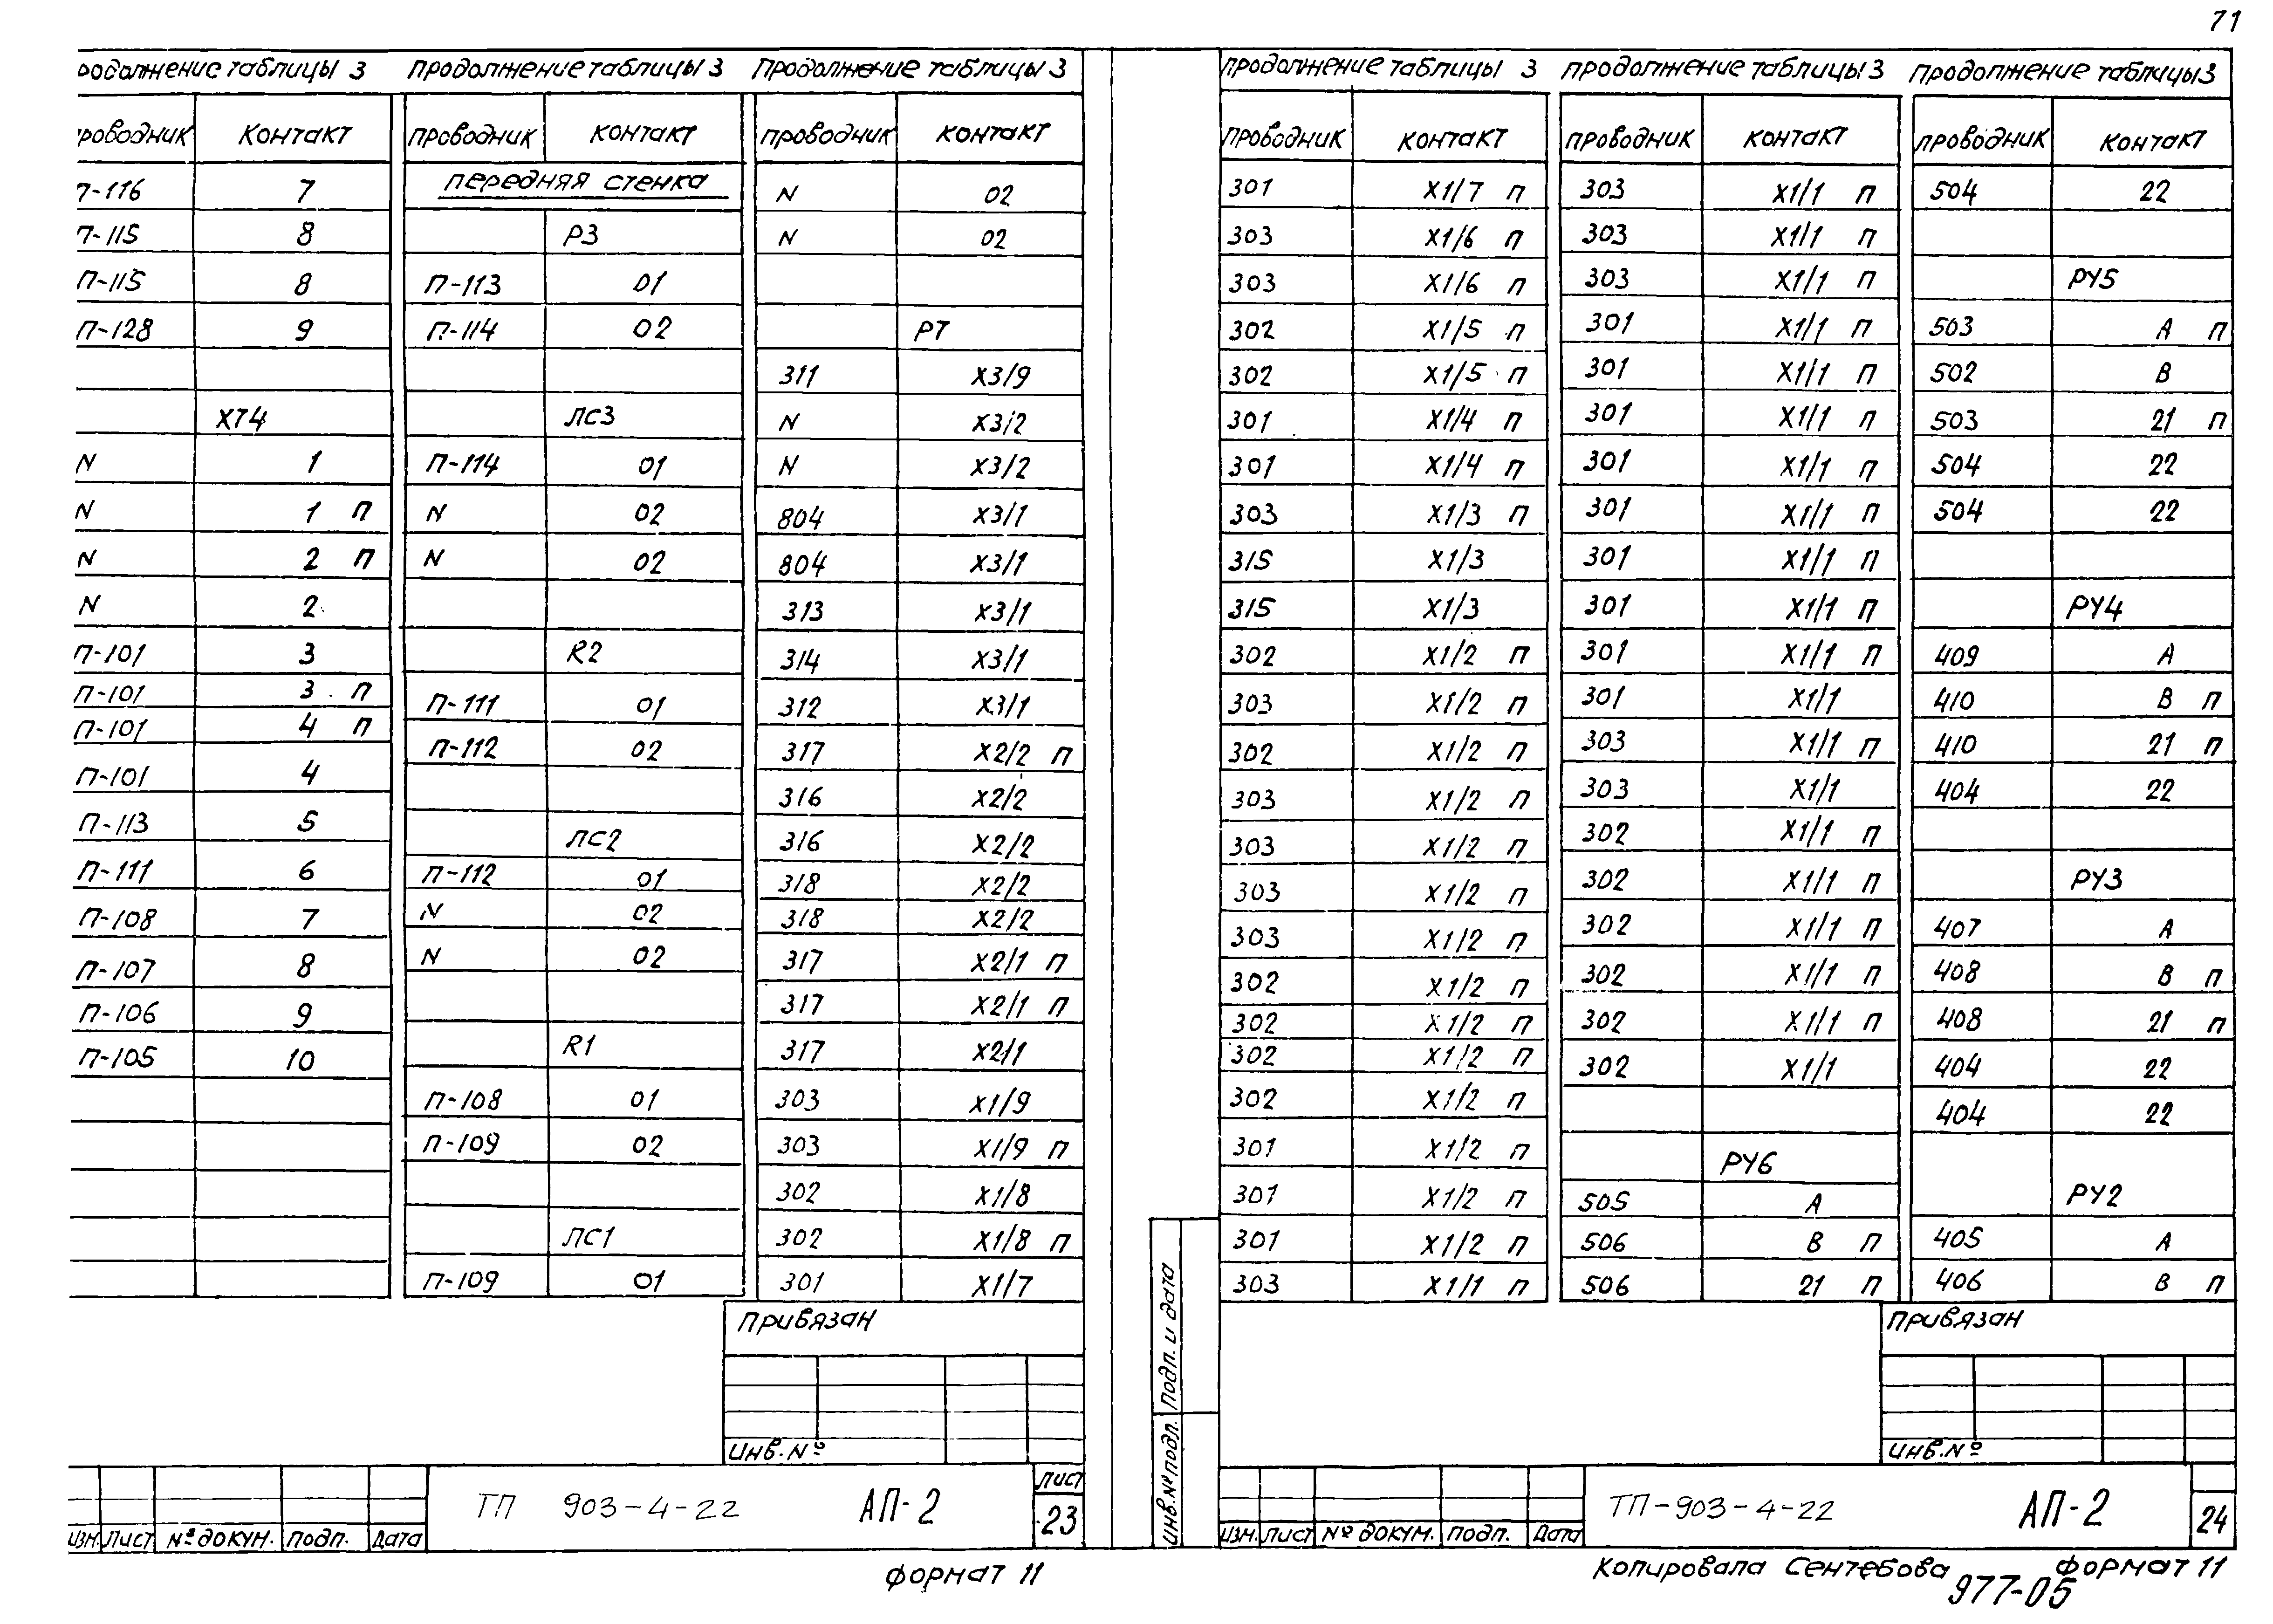 71
родолжение таблицы 3
проводник Контакт
П-116 7
П-115 8
П-115 8
П-128 9
ХТ4
N 1
N 1 П
N 2 П
N 2
П-101 3
П-101 3 П
П-101 4 П
П-101 4
П-113 5
П-111 6
П-108 7
П-107 8
П-106 9
П-105 10
Продолжение таблицы 3
проводник контакт
передняя стенка
Р3
П-113 01
П-114 02
ЛС3
П-114 01
N 02
N 02
R2
П-111 01
П-112 02
ЛС2
П-112 01
N 02
N 02
R1
П-108 01
П-109 02
ЛС1
П-109 01
Продолжение таблицы 3
проводник контакт
N 02
N 02
Р7
311 Х3/9
N Х3/2
N Х3/2
804 Х3/1
804 Х3/1
313 Х3/1
314 Х3/1
312 Х3/1
317 Х2/2 П
316 Х2/2
316 Х2/2
318 Х2/2
318 Х2/2
317 Х2/1 П
317 Х2/1 П
317 Х2/1
303 Х1/9
303 Х1/9 П
302 Х1/8
302 Х1/8 П
301 Х1/7
Привязан
Инв. №
Изм. Лист № докум. Подп. Дата
ТП 903-4-22 АП-2
Лист
23
Формат 11
Продолжение таблицы 3
проводник контакт
301 Х1/7 П
303 Х1/6 П
303 Х1/6 П
302 Х1/5 П
302 Х1/5 П
301 Х1/4 П
301 Х1/4 П
303 Х1/3 П
315 Х1/3
315 Х1/3
302 Х1/2 П
303 Х1/2 П
302 Х1/2 П
303 Х1/2 П
303 Х1/2 П
303 Х1/2 П
303 Х1/2 П
302 Х1/2 П
302 Х1/2 П
302 Х1/2 П
302 Х1/2 П
301 Х1/2 П
301 Х1/2 П
301 Х1/2 П
303 Х1/1 П
Продолжение таблицы 3
проводник контакт
303 Х1/1 П
303 Х1/1 П
303 Х1/1 П
301 Х1/1 П
301 Х1/1 П
301 Х1/1 П
301 Х1/1 П
301 Х1/1 П
301 Х1/1 П
301 Х1/1 П
301 Х1/1 П
301 Х1/1
303 Х1/1 П
303 Х1/1
302 Х1/1 П
302 Х1/1 П
302 Х1/1 П
302 Х1/1 П
302 Х1/1 П
302 Х1/1
РУ6
505 А
506 В П
506 21 П
Продолжение таблицы 3
проводник контакт
504 22
РУ5
503 А П
502 В
503 21 П
504 22
504 22
РУ4
409 А
410 В П
410 21 П
404 22
РУ3
407 А
408 В П
408 21 П
404 22
404 22
РУ2
405 А
406 В П
Привязан
Инв. №
Инв. № подл. Подп. и дата
Изм. Лист № докум. Подп. Дата
ТП-903-4-22 АП-2
24
Копировала Сентебова Формат 11
977-05